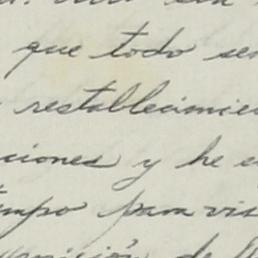 que todo ser
restablecimie
ciones y he e
empo para vis
de